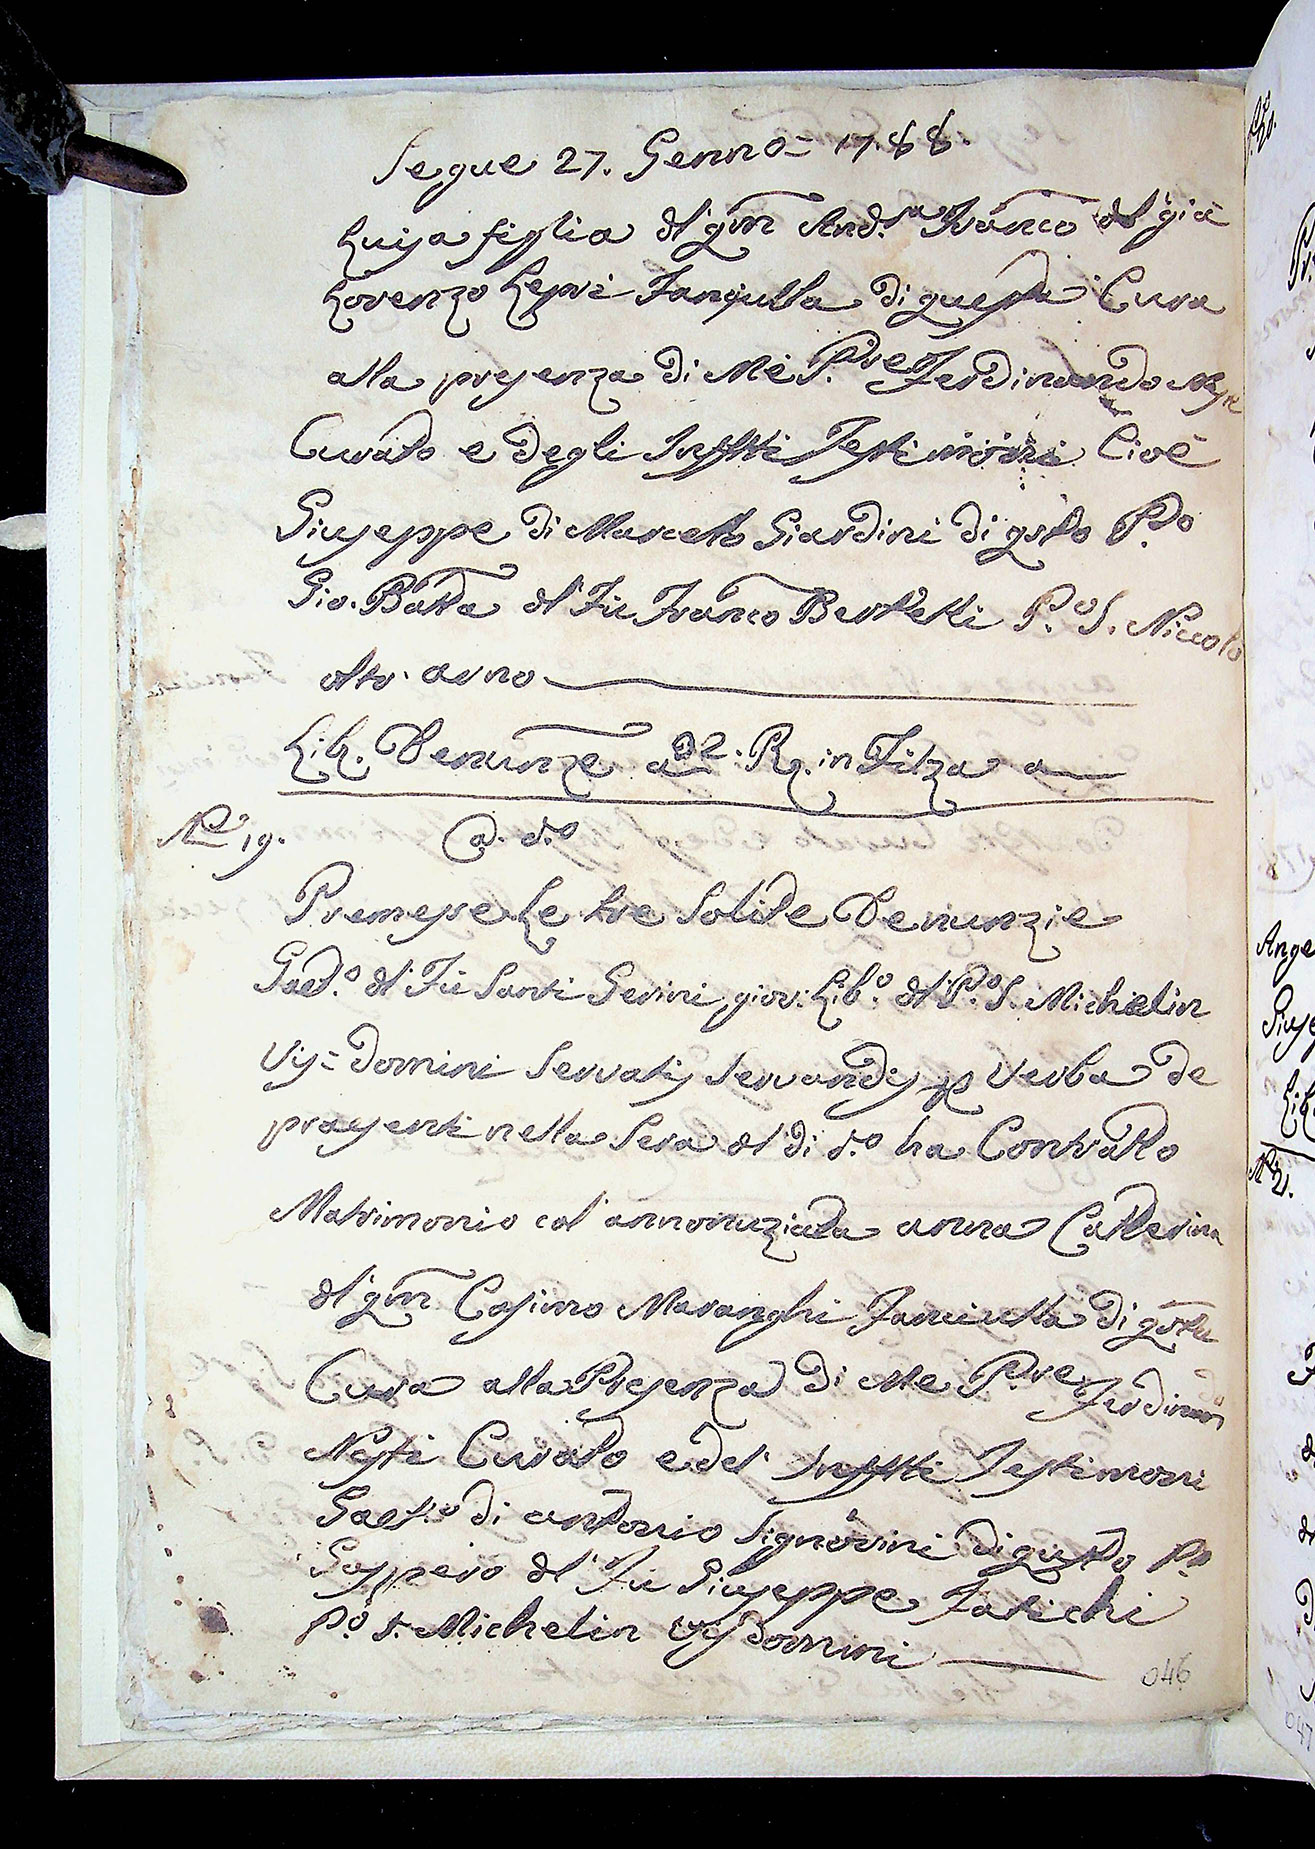 Segue 27. Genno- 1788.
Luisa figlia dl' qm And.a Franco dl già
Lorenzo Lepri Fanciulla di questa Cura
alla presenza di Me P.re Ferdinando Nesti
Curato e degli Infstti Testimoni Cioè
Giuseppe di Marcello Giardini di qsto P.o
Gio. Batta dl' Fu Franco Berttelli P.o S. Niccolo
oltr' arno
Lib. Denunze a 32: R. in Filza a
No 19.
A. d.o
Premesse Le tre Solite Denunzie
Gaet.o dl' Fu Santi Gerini giov: Lib.o dl P.o S. Michelin
Vis= domini Servatis Servandis p Verba de
presenti nella Sera dl di d.o ha Contratto
Matrimonio col' annonuziata anna Catterina
dl' qm Cosimo Maranghi Fanciulla di qsta
Cura alla Presenza di Me P.re Ferdinan
do
Nesti Curato e del' Infstti Testimoni
Gaet.o di antonio Signorini di questo P.o
Gaspero dl' Fu Giuseppe Fatichi
P.o S. Michelin Visdomini
046
No 20.
Ange
Giuse
Lib
No 21.
047